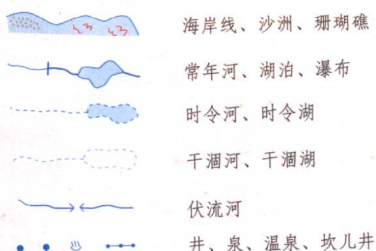 海岸线、沙洲、珊瑚礁
常年河、湖泊、瀑布
时令河、时令湖
干涸河、干涸湖
伏流河
井、泉、温泉、坎儿井